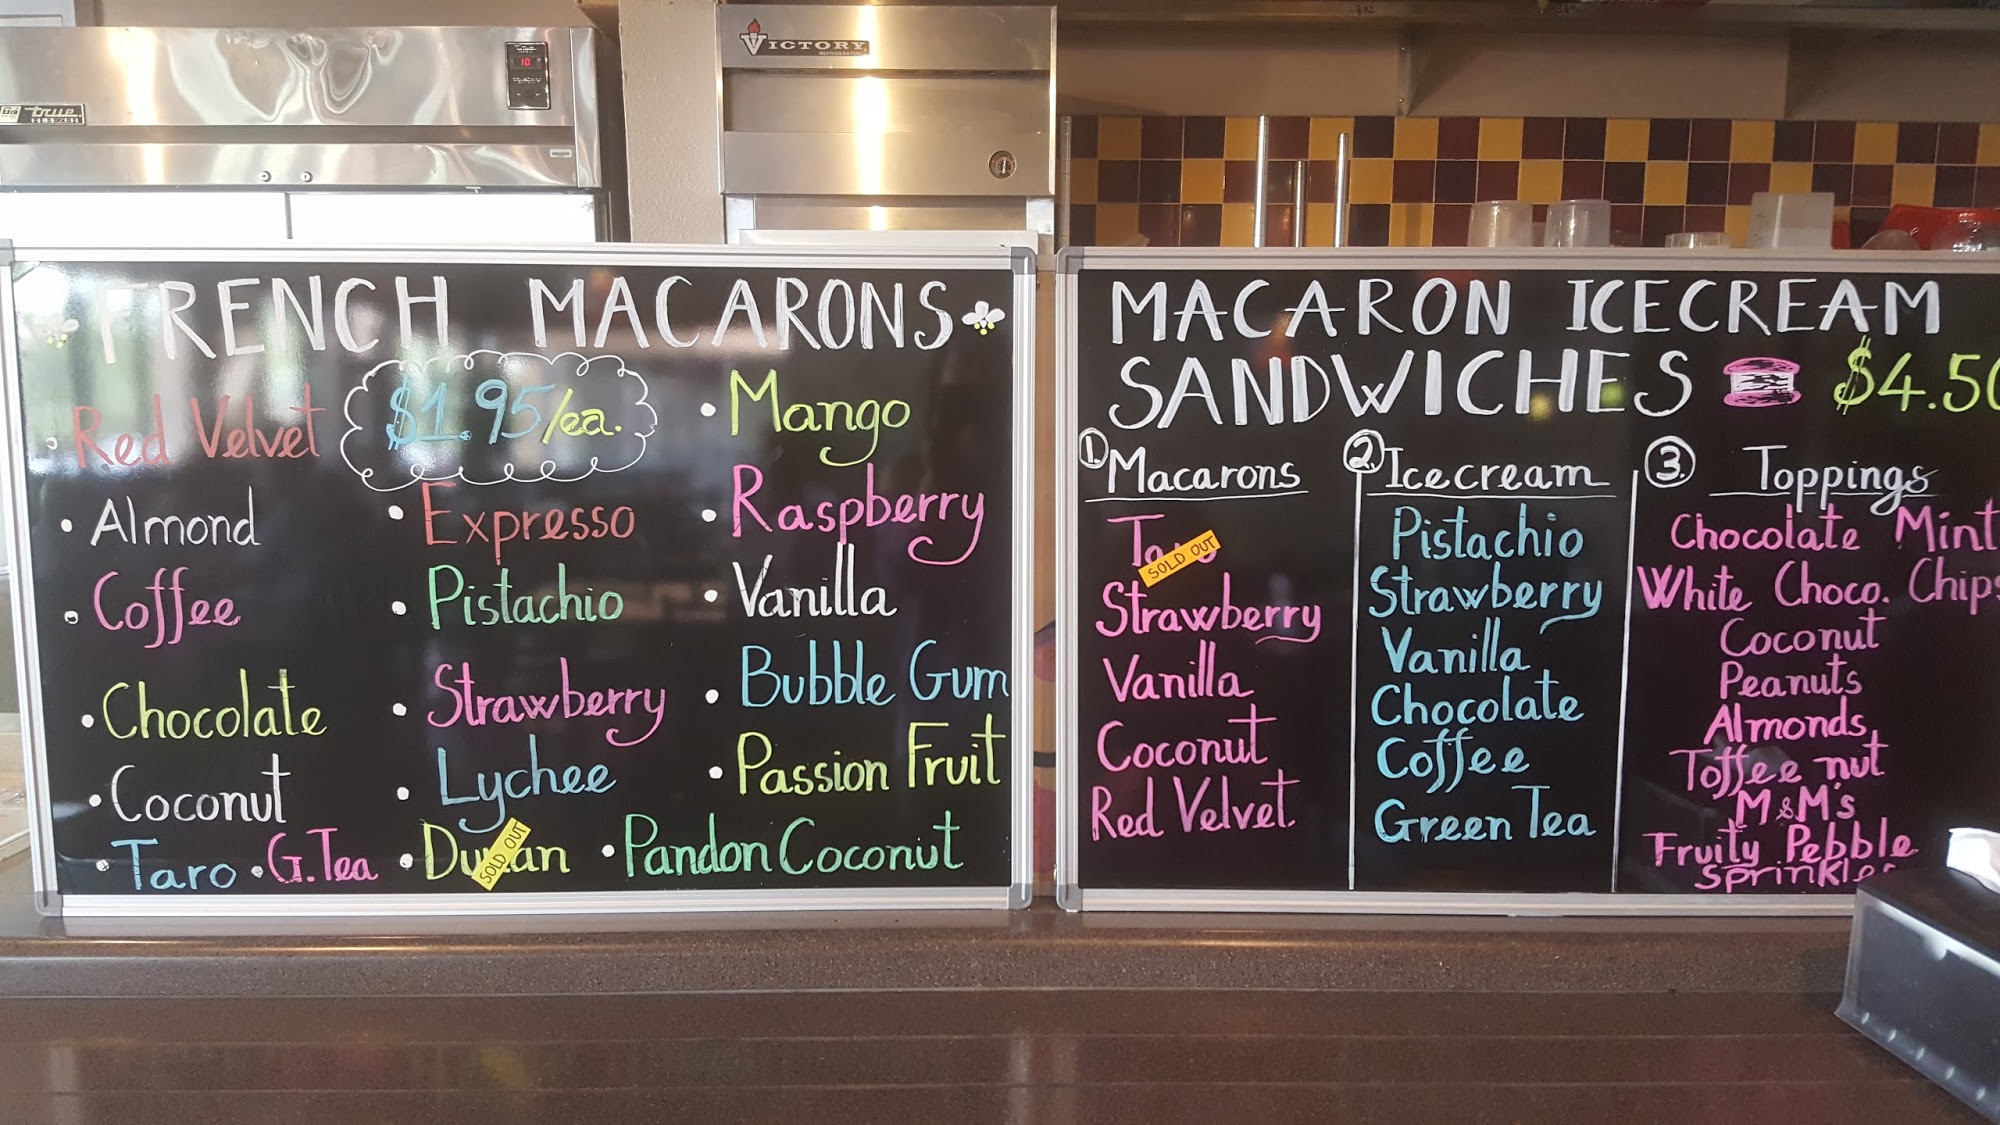 true
10
VICTORY
REFRIGERATOR
FRENCH MACARONS
$1.95/ea.
• Red Velvet
• Almond
• Coffee
• Chocolate
• Coconut
• Taro • G.Tea
• Expresso
• Pistachio
• Strawberry
• Lychee
• Durian
SOLD OUT
• Mango
• Raspberry
• Vanilla
• Bubble Gum
• Passion Fruit
• Pandon Coconut
MACARON ICECREAM
SANDWICHES $4.50
1. Macarons
Taro
SOLD OUT
Strawberry
Vanilla
Coconut
Red Velvet
2. Icecream
Pistachio
Strawberry
Vanilla
Chocolate
Coffee
Green Tea
3. Toppings
Chocolate Mint
White Choco. Chips
Coconut
Peanuts
Almonds
Toffee nut
M&M's
Fruity Pebble
Sprinkles